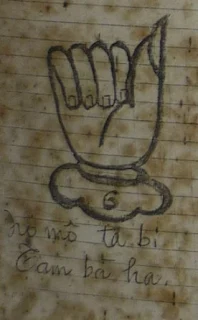 6
no mô ta bi
Tam bà ha.